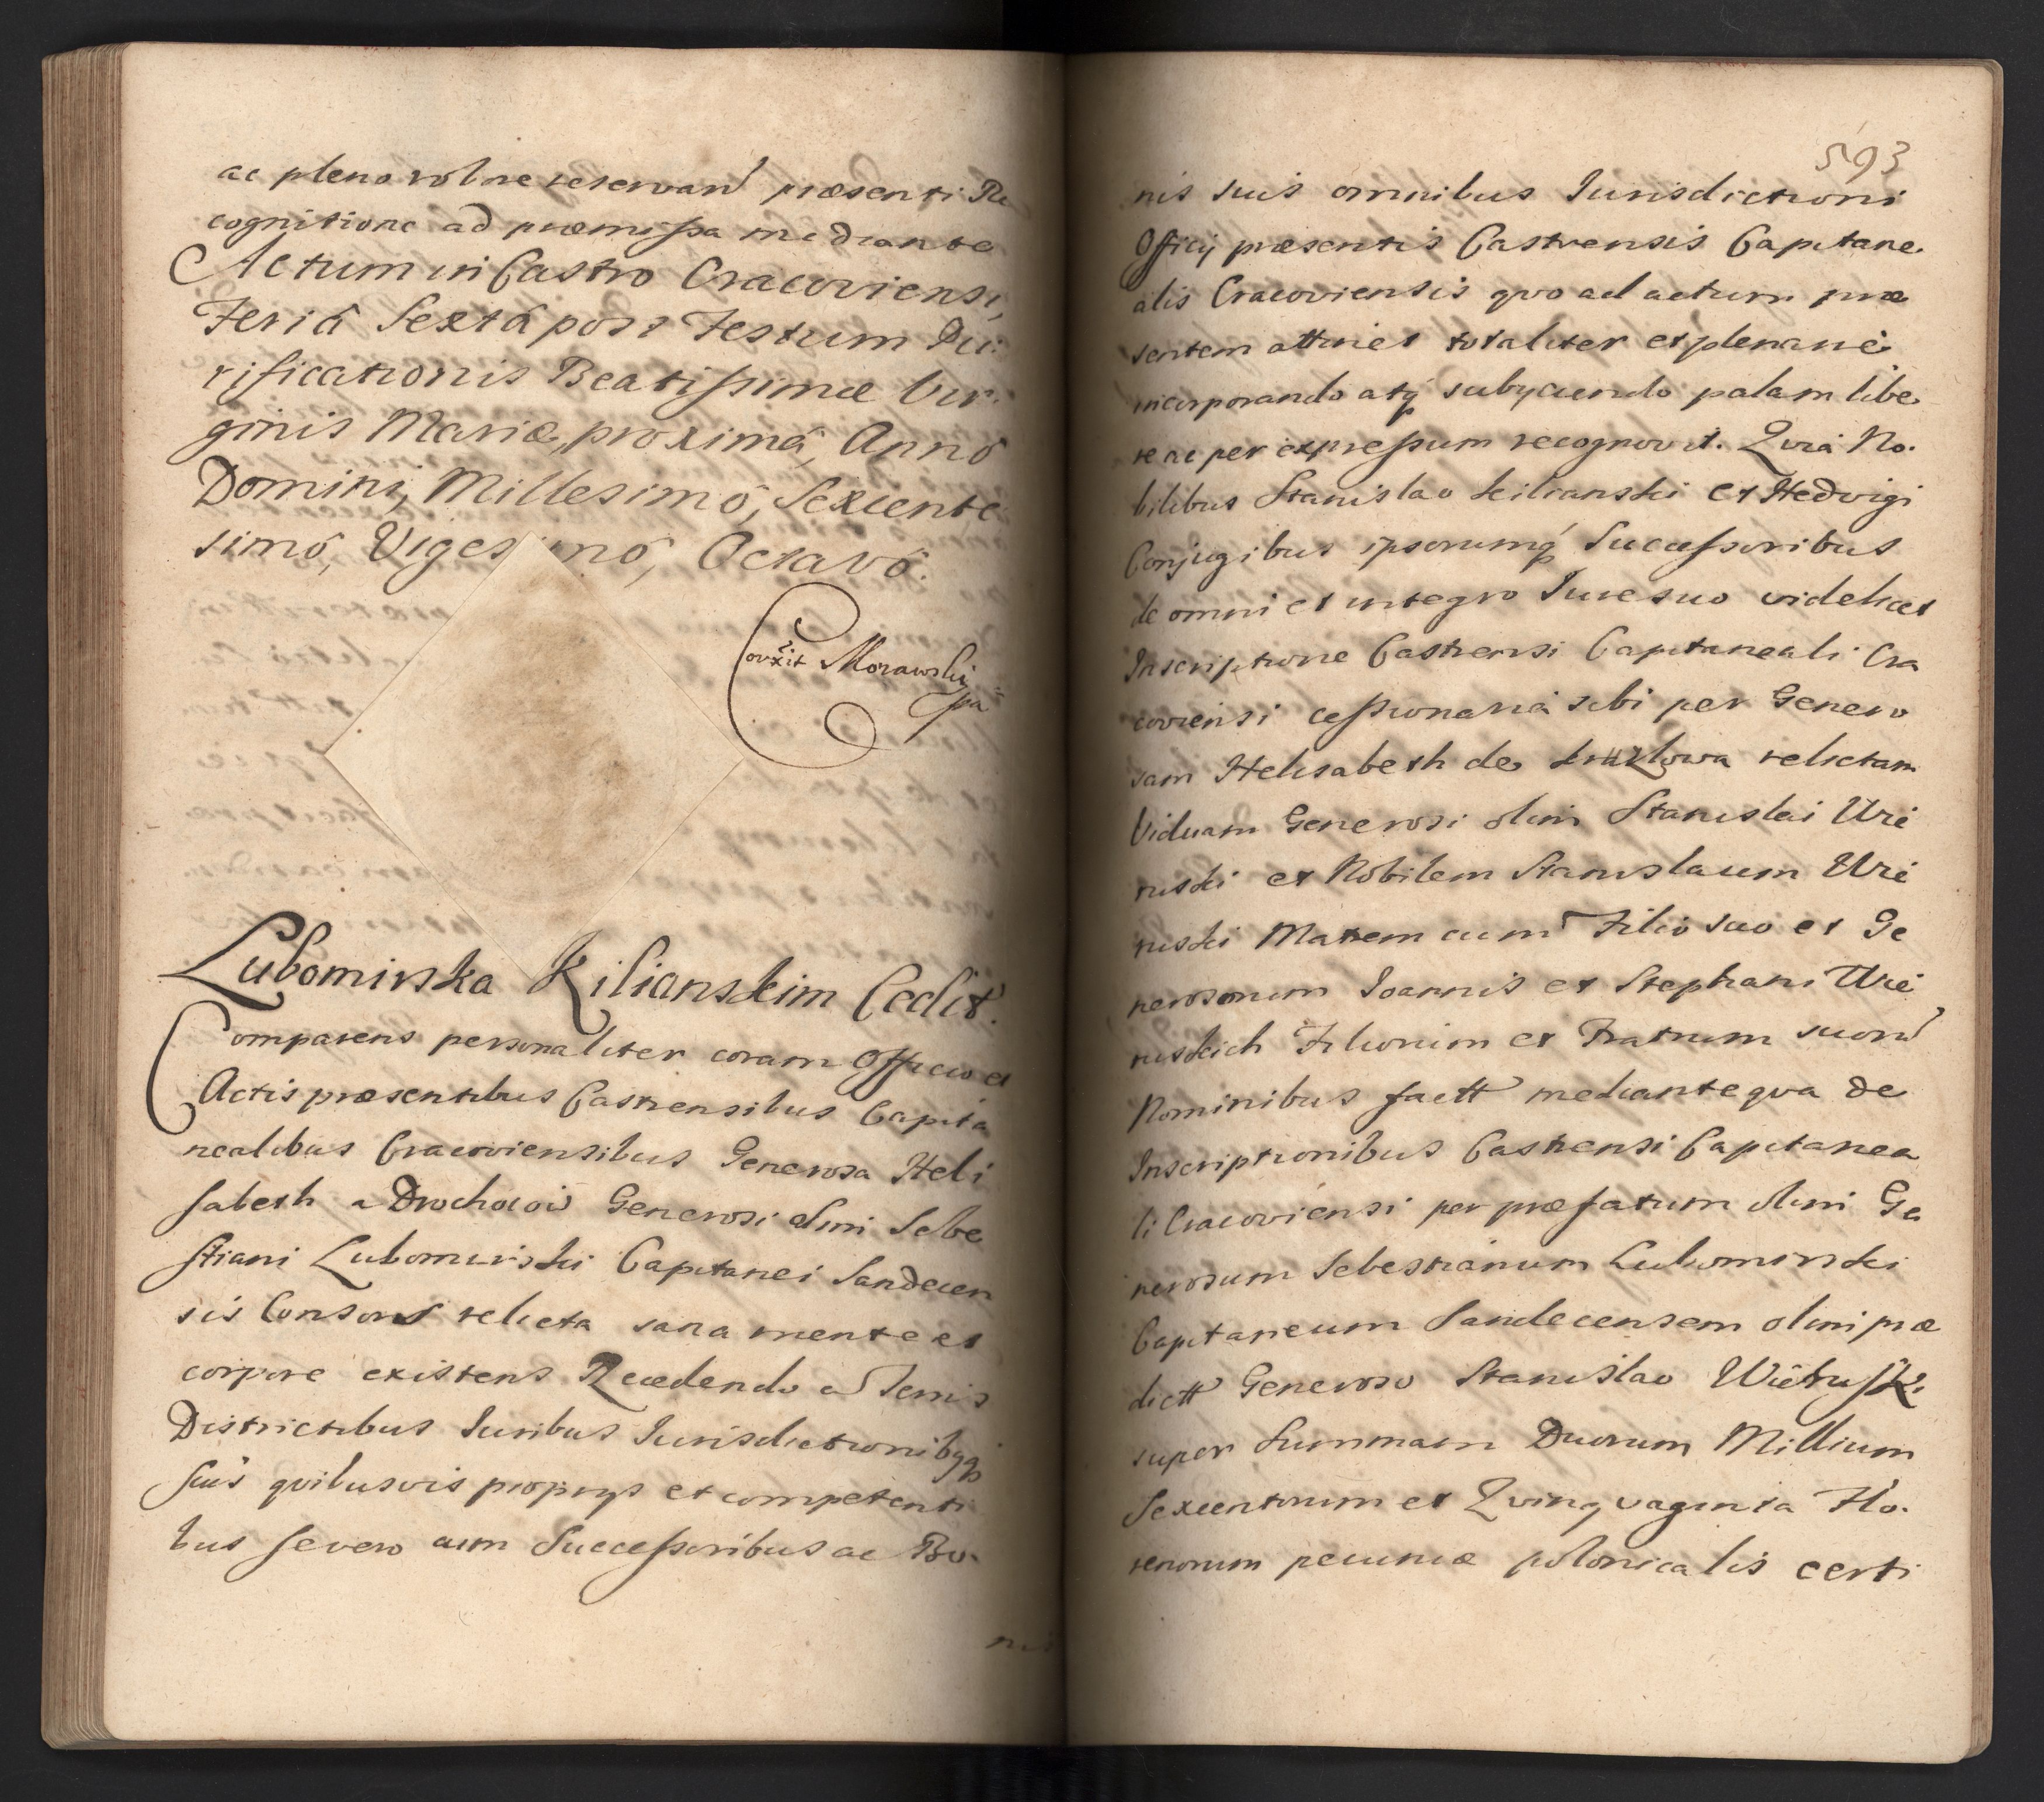 ac pleno robore reservan̄ præsenti Re
cognitione ad præmissa mediante
Actum in Castro Cracoviensi,
Feriâ Sextâ post Festum Pu:
rificationis Beatissimæ Vir:
ginis Mariæ, proximâ, Annô
Domini, Millesimô, Sexcente
simô, Viges imô, Octavô.
Correxit Morawski
Lubomirska Kilianskim Cedit.
Comparens personaliter coram Officio et
Actis præsentibus Castrensibus Capita
nealibus Cracoviensibus Generosa Heli
sabeth a Generosi olim Sebe
stiani Lubomirski Capitanei Sandecen
sis Consors relicta sana mente et
corpore existens Recedendo a Terris
Districtibus Iuribus Iurisdictionibqz
suis qvibusvis proprys et competenti
bus severo cum Successoribus ac Bo.
nis
593
nis suis omnibus Iurisdictioni
Officij præsentis Castrensis Capitane
alis Cracoviensis qvo ad actum præ
sentem attinet totaliter et plenarie
incorporando atq subyciendo palam libe
re ac per expressum recognovit. Qvia No.
bilibus Stanislao Kilianski et Hedvigi
Conjugibus ipsorumq Successoribus
de omni et integro Iure suo videlicet
Inscriptione Castrensi Capitaneali Cra
coviensi cessionaria sibi per Genero
sam Helisabeth de relictam
Viduam Generosi olim Stanislai Wie
ruski et Nobilem Stanislaum Wie
ruski Matrem cum Filio suo et Ge
nerosorum Ioannis et Stephani Wie
ruskich Filiorum et Fratrum suor̄
Nominibus factt mediante qva de
Inscriptionibus Castrensi Capitanea
li Cracoviensi per præfatum olim Ge
nerosum Sebestianum Lubomirski
Capitaneum Sandecensem olim præ
dictt Generoso Stanislao Wieruski
super Summam Duorum Millium
Sexcentorum et Qvinqvaginta Flo.
renorum pecuniæ polonicalis certi